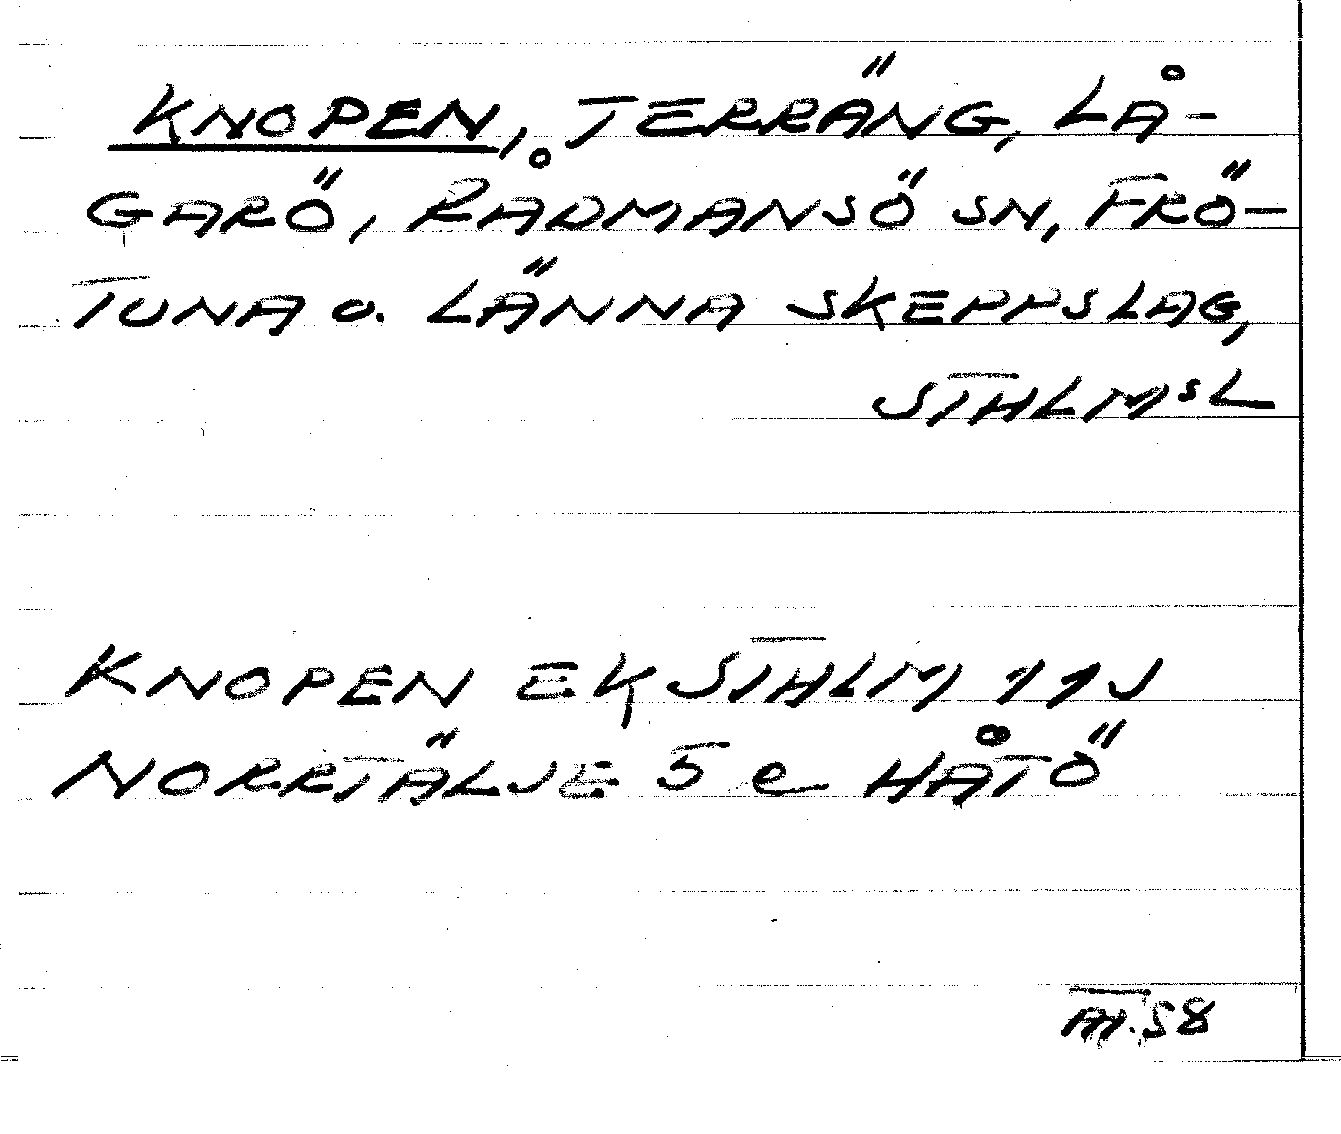 KNOPEN, TERRÄNG, LÅ-
GARÖ, RÅDMANSÖ SN, FRÖ-
TUNA O. LÄNNA SKEPPSLAG,
STHLMSL
KNOPEN EK STHLM 11J
NORRTÄLJE 5 e HÅTÖ
58